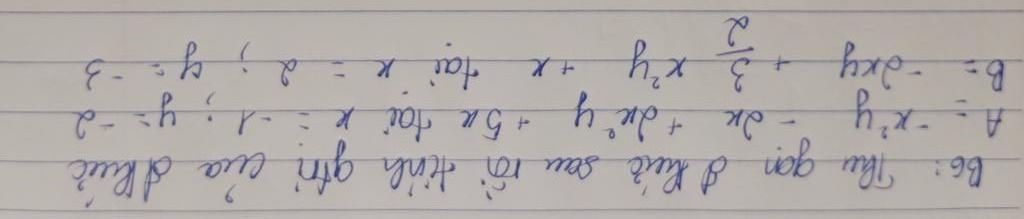 B6: Thu gọn đ thức sau rồi tính gtrị của đ thức
A = -x²y - 2x + 2x²y + 5x tại x = -1 ; y = -2
B = -2xy + 3/2 x²y + x tại x = 2 ; y = -3